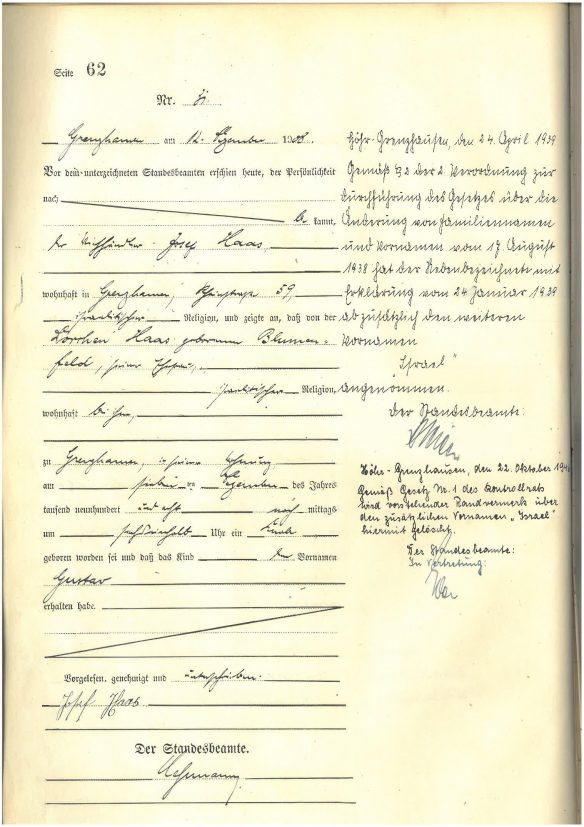 Seite 62
Nr.
Grenzhausen am 12. Dezember 1908.
Vor dem unterzeichneten Standesbeamten erschien heute, der Persönlichkeit
nach
be kannt,
der Viehhändler Josef Haas
wohnhaft in Grenzhausen, Rheinstraße 59,
israelitischer Religion, und zeigte an, daß von der
Lorchen Haas geborenen Blumen-
feld, seiner Ehefrau,
israelitischer Religion,
wohnhaft bei ihm,
zu Grenzhausen, in seiner Wohnung
am siebenten Dezember des Jahres
tausend neunhundert und acht nach mittags
um Uhr ein Knabe
geboren worden sei und daß das Kind den Vornamen
Gustav
erhalten habe.
Vorgelesen, genehmigt und unterschrieben.
Josef Haas
Der Standesbeamte.
Höhr-Grenzhausen, den 24. April 1939
Gemäß § 2 der 2. Verordnung zur
Durchführung des Gesetzes über die
Änderung von Familiennamen
und Vornamen vom 17. August
1938 hat der Nebenbezeichnete mit
Erklärung vom 24 Januar 1939
zusätzlich den weiteren
Vornamen
"Israel"
angenommen.
Der Standesbeamte:
Höhr-Grenzhausen, den 22. Oktober
Gemäß Gesetz Nr. 1 des Kontrollrats
wird vorstehender Randvermerk über
den zusätzlichen Vornamen „Israel"
hiermit gelöscht.
Der Standesbeamte:
In Vertretung: